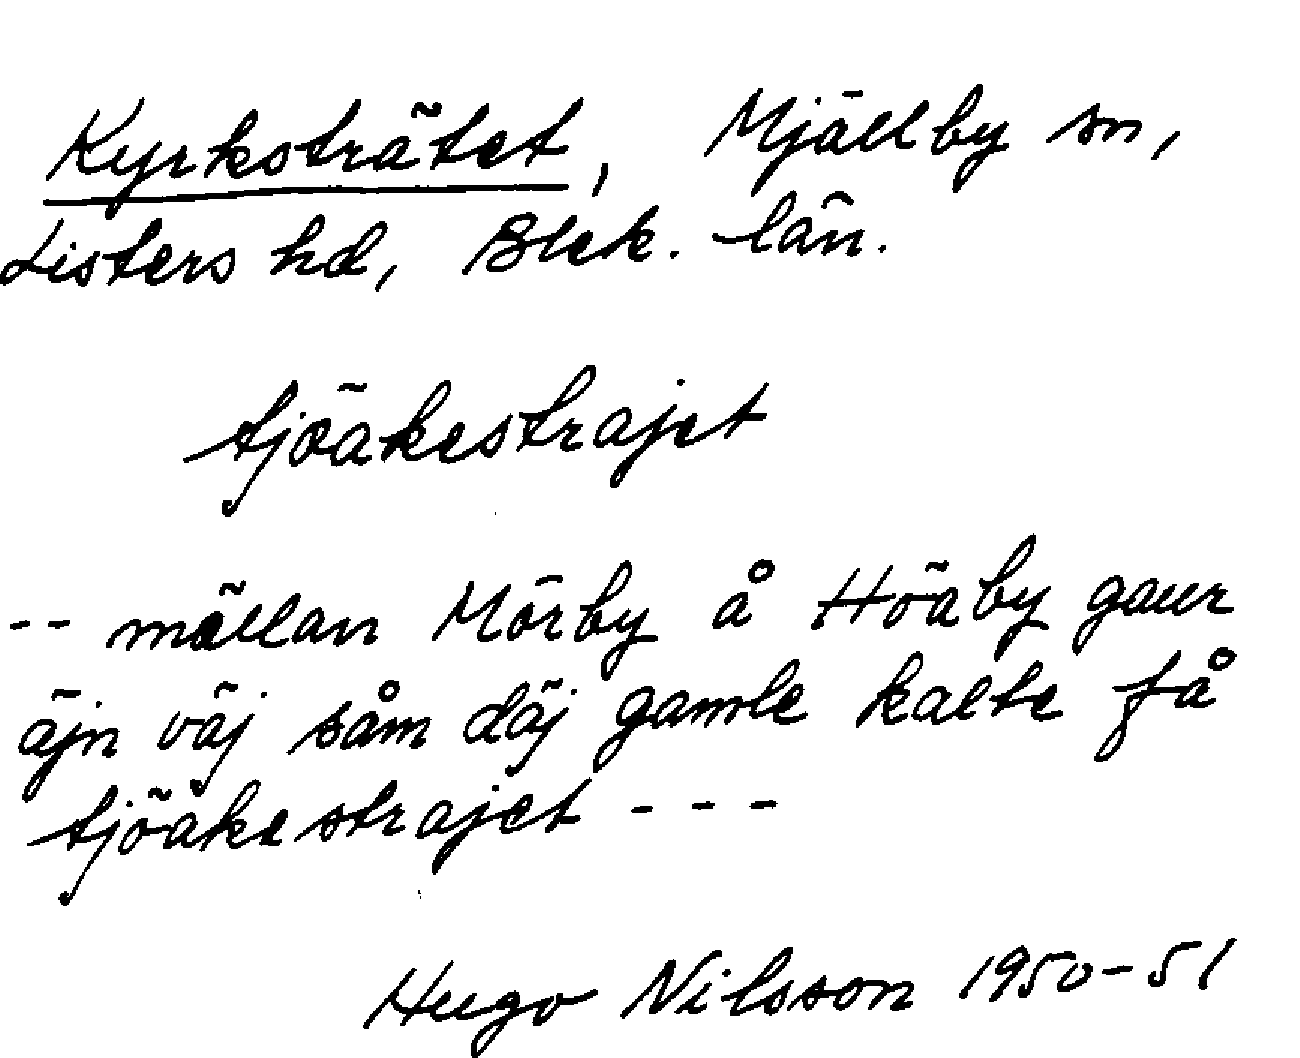 Kyrksträtet, Mjällby sn,
Listers hd, Blek. län.
tjöakestrajet
-- mällan Mörby å Höaby gaur
äjn väj såm däj gamle kalte få
tjöakestrajet ---
Hugo Nilsson 1950-51